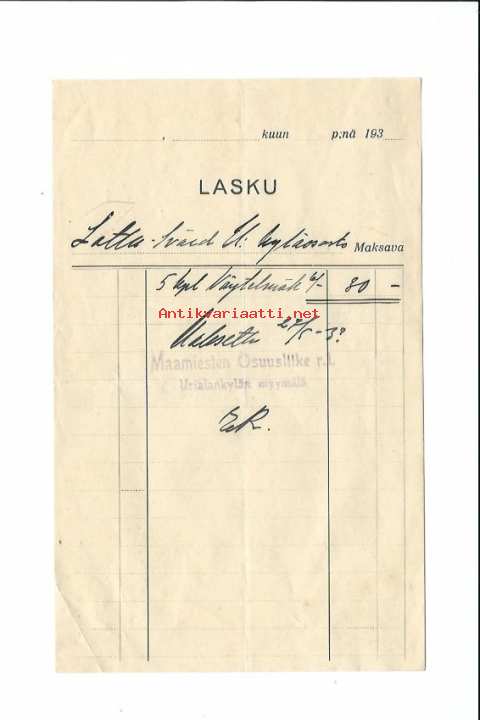 kuun p:nä 193
LASKU
Lotta-Svärd U: kyläosasto Maksava
5 kpl Näytelmää 6/- 80 -
Antikvariaatti.net
Maksettu 27/5-3?
Maamiesten Osuusliike r.l.
Urjalankylän myymälä
ER.